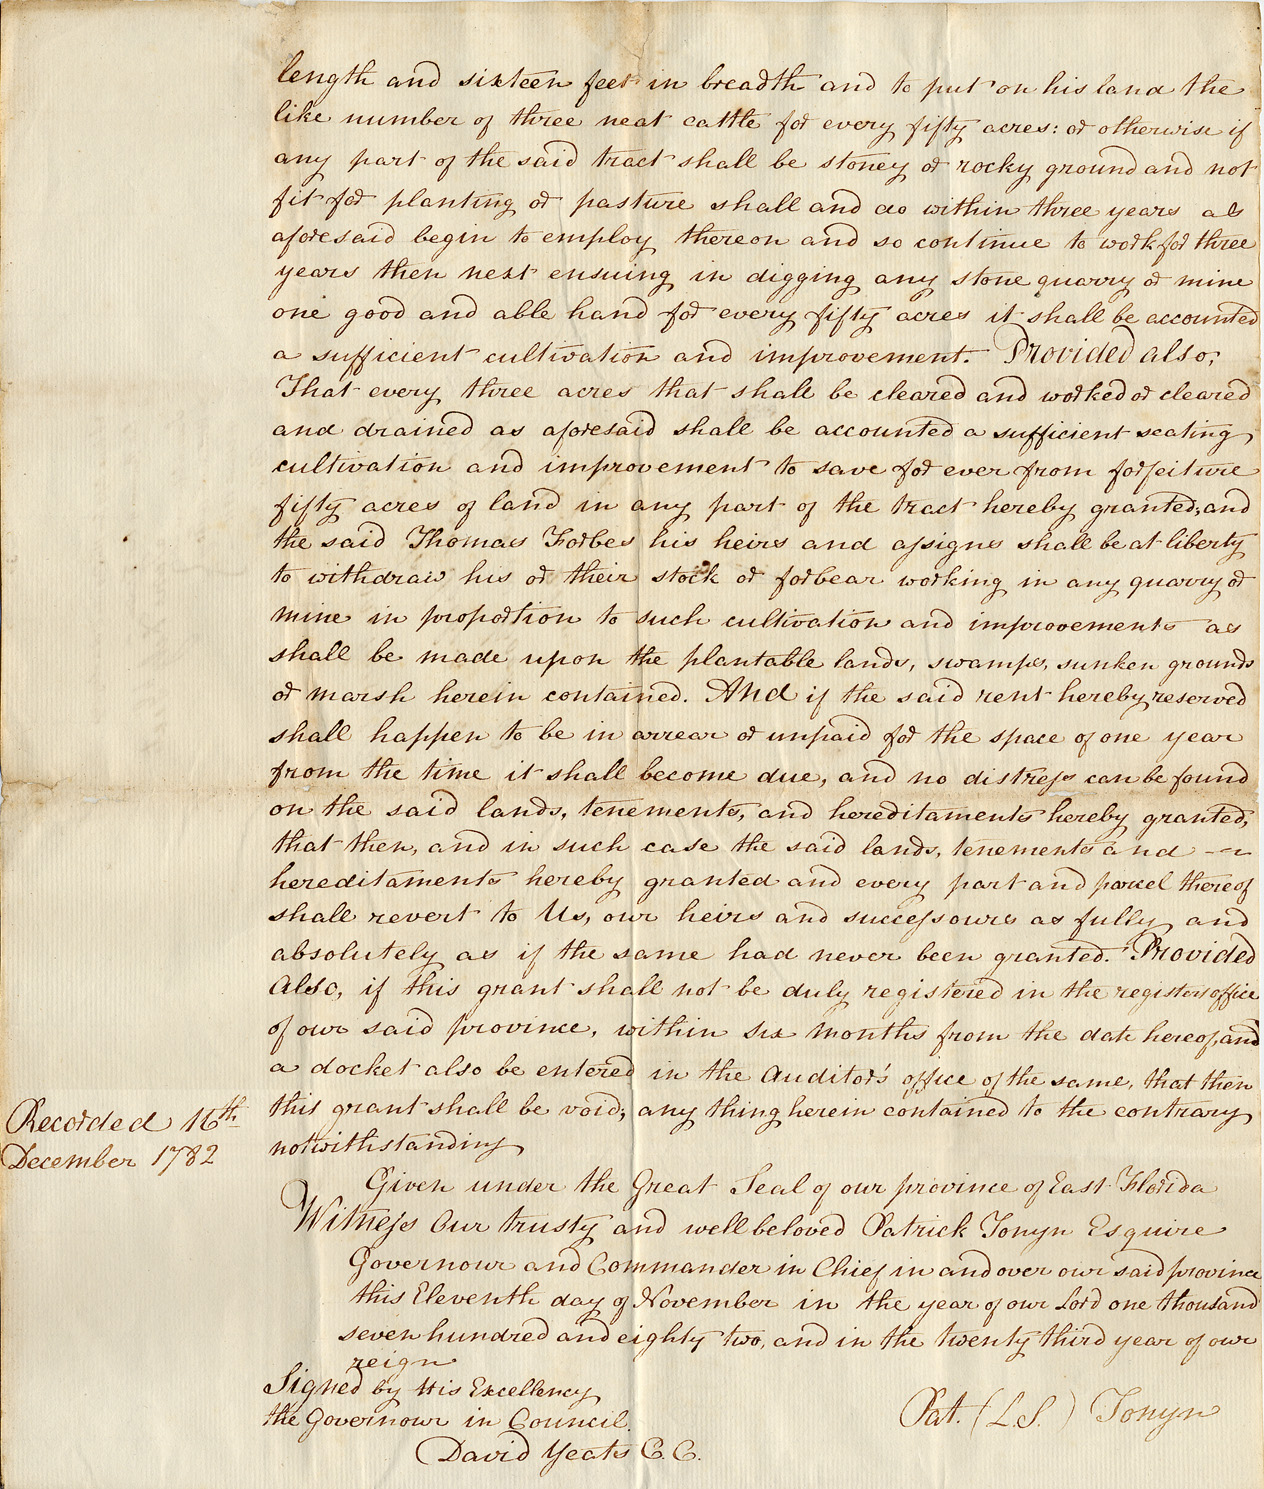 length and sixteen feet in breadth and to put on his land the
like number of three neat cattle for every fifty acres: or otherwise if
any part of the said tract shall be stoney or rocky ground and not
fit for planting or pasture shall and do within three years as
aforesaid begin to employ thereon and so continue to work for three
years then next ensuing in digging any stone quarry or mine
one good and able hand for every fifty acres it shall be accounted
a sufficient cultivation and improvement. Provided also,
That every three acres that shall be cleared and worked or cleared
and drained as aforesaid shall be accounted a sufficient seating
cultivation and improvement to save for ever from forfeiture
fifty acres of land in any part of the tract hereby granted; and
the said Thomas Forbes his heirs and assigns shall be at liberty
to withdraw his or their stock or forbear working in any quarry or
mine in proportion to such cultivation and improvements as
shall be made upon the plantable lands, swamps, sunken grounds
or marsh herein contained. And if the said rent hereby reserved
shall happen to be in arrear or unpaid for the space of one year
from the time it shall become due, and no distress can be found
on the said lands, tenements, and hereditaments hereby granted,
that then, and in such case the said lands, tenements and
hereditaments hereby granted and every part and parcel thereof
shall revert to Us, our heirs and successours as fully and
absolutely as if the same had never been granted. Provided
Also, if this grant shall not be duly registered in the registers office
of our said province, within six months from the date hereof, and
a docket also be entered in the Auditor's office of the same, that then
this grant shall be void; any thing herein contained to the contrary
notwithstanding
Recorded 16th
December 1782
Given under the Great Seal of our province of East Florida
Witness Our trusty and well beloved Patrick Tonyn Esquire
Governour and Commander in Chief in and over our said province
this Eleventh day of November in the year of our Lord one thousand
seven hundred and eighty two, and in the twenty third year of our
reign
Signed by His Excellency
the Governour in Council.
David Yeats C.C.
Pat. (L.S.) Tonyn